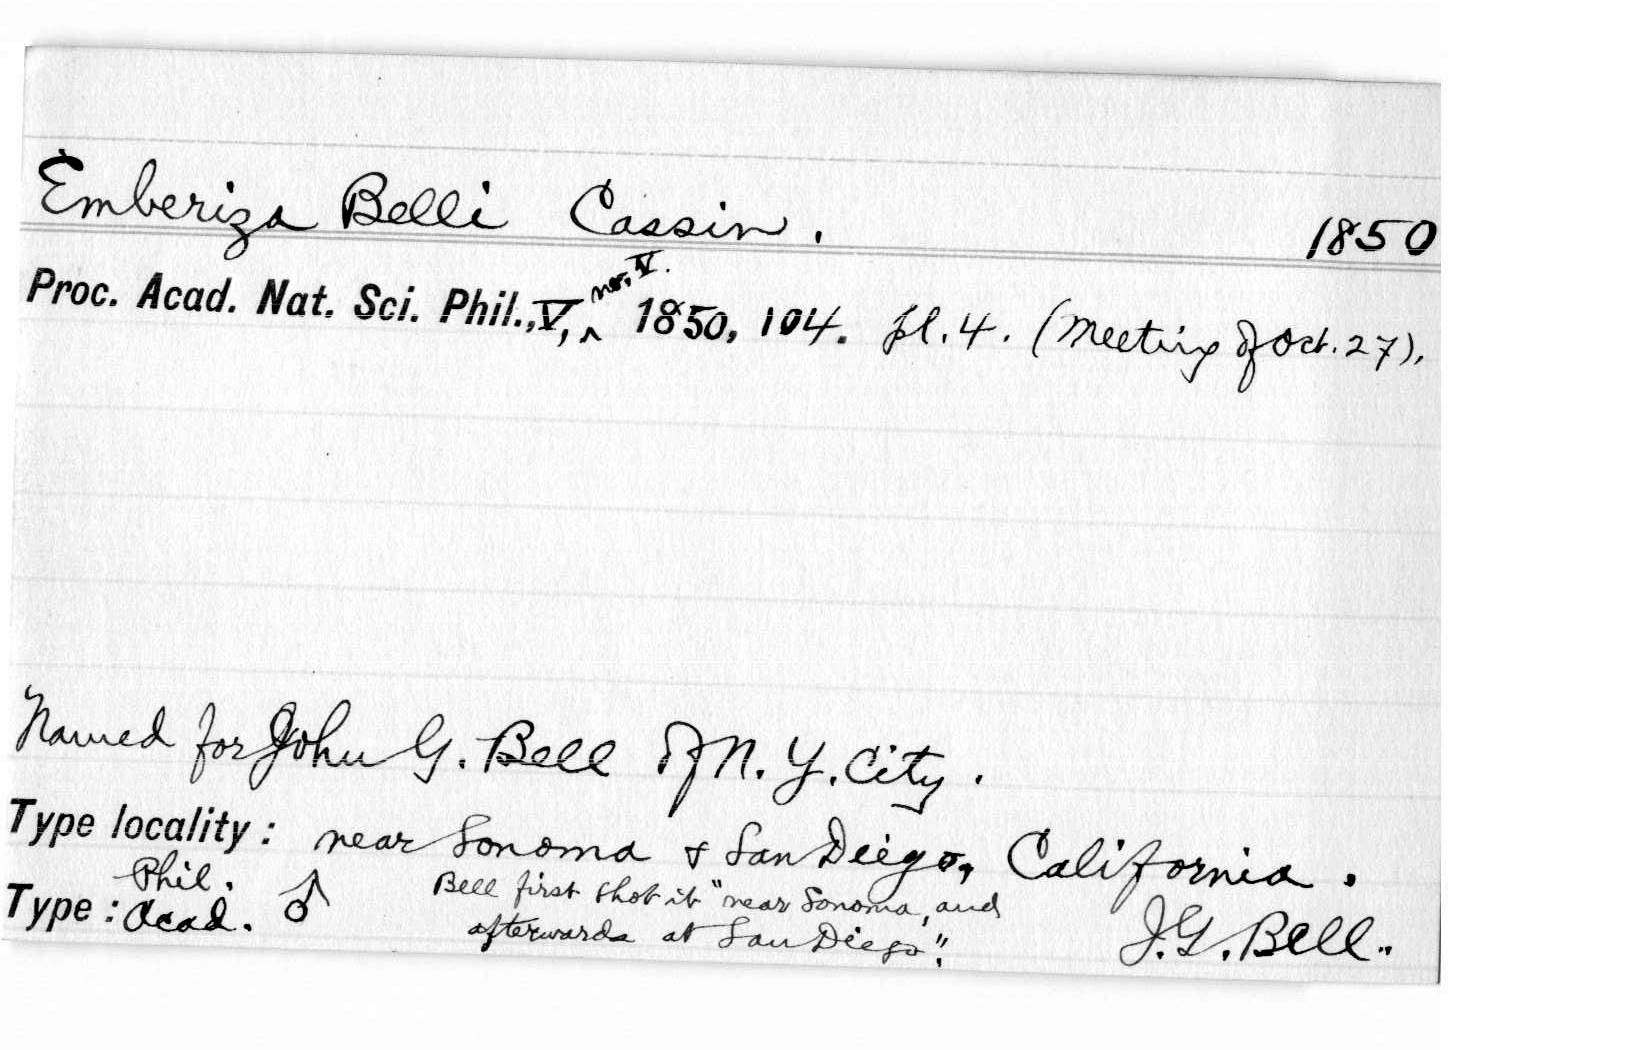 Emberiza Belli Cassin. 1850
Proc. Acad. Nat. Sci. Phil., V, no. V. 1850, 104. pl. 4. (Meeting of Oct. 27).
Named for John G. Bell of N. Y. City.
Type locality: near Sonoma & San Diego, California.
Type: Phil. Acad. ♂ Bell first shot it "near Sonoma, and
afterwards at San Diego". J. G. Bell.